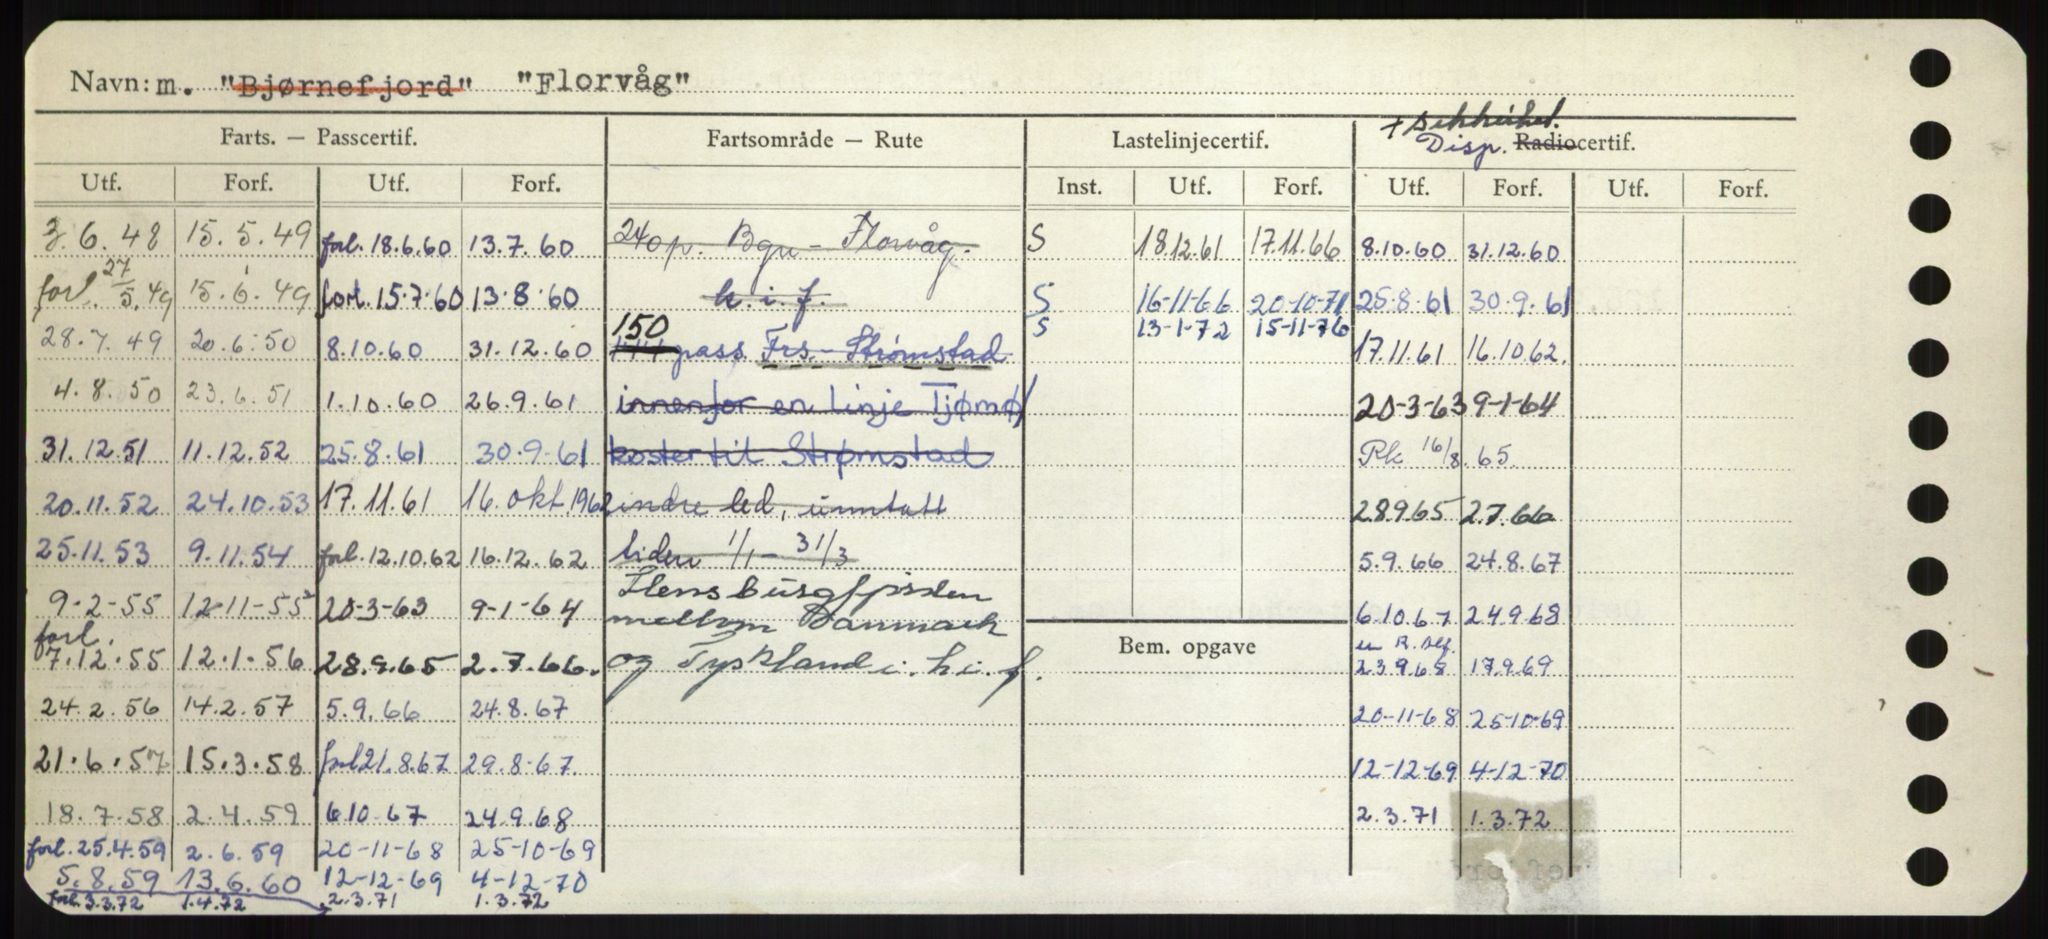 Navn: m. "Bjørnefjord" "Florvåg"
Farts. — Passcertif. Fartsområde — Rute Lastelinjecertif. + Sikkerhet. Disp. Radiocertif.
Utf. Forf. Utf. Forf. Inst. Utf. Forf. Utf. Forf. Utf. Forf.
3.6.48 15.5.49 forl. 18.6.60 13.7.60 240 p. Bgn - Florvåg. S 18.12.61 17.11.66 8.10.60 31.12.60
forl. 27/5.49 15.6.49 forl. 15.7.60 13.8.60 h.i.f. S 16-11-66 20-10-71 25.8.61 30.9.61
150 S 13-1-72 15-11-76
28.7.49 20.6.50 8.10.60 31.12.60 pass. Frs - Strømstad 17.11.61 16.10.62.
4.8.50 23.6.51 1.10.60 26.9.61 innenfor en linje Tjømø/ 20-3-63 9-1-64
31.12.51 11.12.52 25.8.61 30.9.61 koster til Strømstad Pk 16/8.65.
20.11.52 24.10.53 17.11.61 16. okt. 1962 indre led, unntatt 28.9.65 2.7.66
25.11.53 9.11.54 forl. 12.10.62 16.12.62 tiden 1/1 - 31/3 5.9.66 24.8.67
Flensburgfjorden
9-2-55 12-11-55 20-3-63 9-1-64 mellom Danmark 6.10.67 24.9.68
forl. Bem. opgave
7.12.55 12.1.56 28.9.65 2.7.66. og Tyskland i. h.i.f. 23.9.68 17.9.69
24.2.56 14.2.57 5.9.66 24.8.67 20-11-68 25-10-69
21.6.57 15.3.58 forl 21.8.67 29.8.67. 12-12-69 4-12-70
18.7.58 2.4.59 6.10.67 24.9.68 2.3.71 1.3.72
forl. 25.4.59 2.6.59 20-11-68 25-10-69
5.8.59 13.6.60 12-12-69 4-12-70
forl. 3.3.72 1.4.72 2.3.71 1.3.72